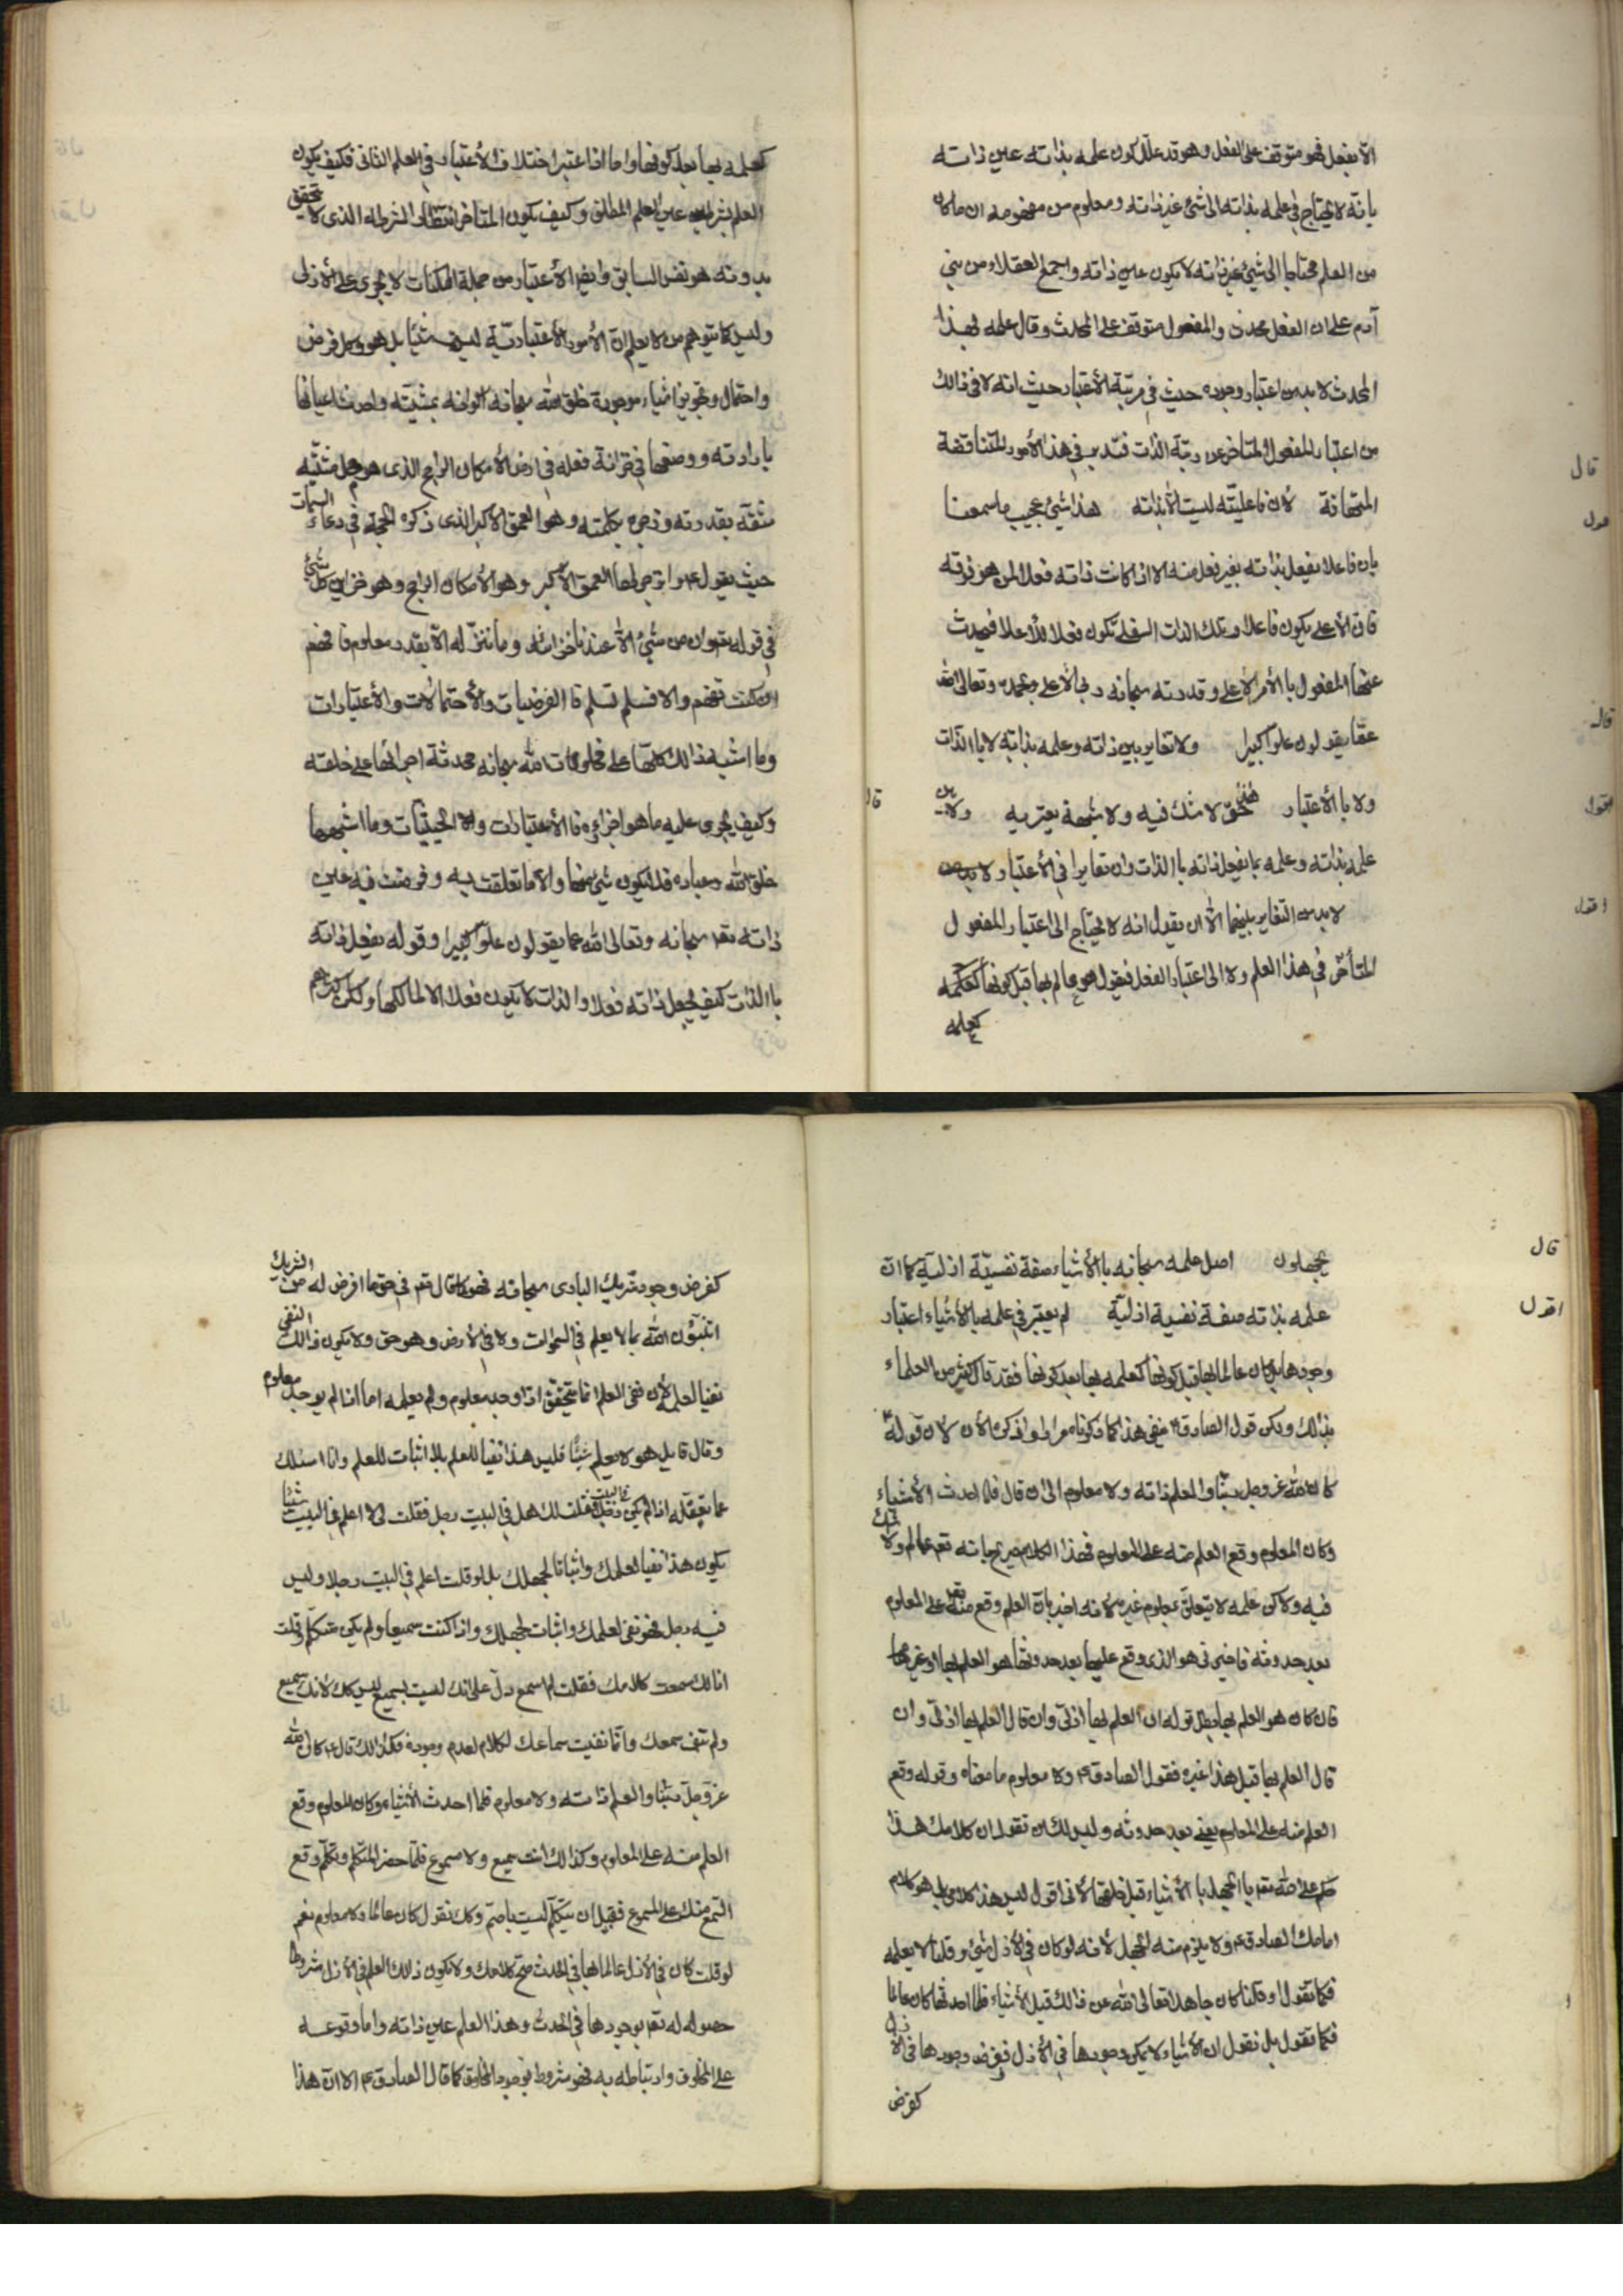 الا بفعل فهو متوقف على الفعل وهو قد علل كون علمه بذاته عين ذاته
بانه لا يحتاج في علمه بذاته الى شئ غير ذاته ومعلوم من مفهومه ان ما كان
من العلم محتاجا الى شئ غير ذاته لا يكون عين ذاته واجمع العقلاء من بني
آدم على ان الفعل محدث والمفعول متوقف على المحدث وقال علمه بهذا
المحدث لا بد من اعتبار وجوده حيث في مرتبة الأعتبار حيث انه لا في ذالك
من اعتبار المفعول المتاخر عن رتبة الذات فتدبر في هذه الأمور المتناقضة
قال
المتهافتة لأن فاعليته ليست الا بذاته هذا شئ عجيب ما سمعنا
اقول
بان فاعلا يفعل بذاته بغير فعل منه الا اذا كانت ذاته فعلا لمن هو فوقه
فان الأعلى يكون فاعلا وتلك الذات السفلى تكون فعلا للأعلا فيحدث
عنها المفعول بالأمر الأعلى وقدرته سبحانه ربي الأعلى وبحمده وتعالى الله
قال
عما يقولون علوا كبيرا ولا تغاير بين ذاته وعلمه بذاته لا باالذات
اقول
ولا باالأعتبار هذا حق لا شك فيه ولا شبهة يعتريه ولا بين
قال
علمه بذاته وعلمه بما يفعل ذاته باالذات وان تغايرا في الأعتبار
اقول
لا بد من التغاير بينهما الا ان يقول انه لا يحتاج الى اعتبار المفعول
المتأخر في هذا العلم ولا الى اعتبار الفعل فيقول هو عالم بها قبل كونها كعلمه
كعلمه
كعلمه بها بعد كونها واما اذا اعتبر اختلاف الأعتبار في العلم الثاني فكيف يكون
العلم بشرط عين العلم المطلق وكيف يكون المتأخر لشرطه الذي لا تحقق
بدونه هو نفس السابق وايضا الأعتبار من جملة الممكنات لا يجري على الأزلى
وليس كما يتوهم من لا يعلم ان الأمور الأعتبارية ليست شيئا بل هو وكل فرض
واحتمال وتجويز اشياء موجودة خلق الله سبحانه اكوانه بمشيته واحدث اعيانها
بارادته ووضعها في خزانة فعله في ارض الأمكان الراجح الذي هو محل مشيته
شققه بقدرته وزجره بكلمته وهو العمق الأكبر الذي ذكره الحجة ع في دعاء السمات
حيث يقول ع وانزجر لها العمق الأكبر وهو الأمكان الراجح وهو خزاين كل شئ
في قوله تعالى وان من شئ الا عندنا خزائنه وما ننزله الا بقدر معلوم فافهم
ان كنت تفهم والا فسلم تسلم فا الفرضيات والأحتمالات والأعتبارات
وما اشبه ذالك كلها على مخلوقات الله سبحانه محدثة اجراها على خلقه
وكيف يجري عليه ما هو اجراه فا الأعتبارات والحيثيات وما اشبهها
خلق الله وعباده فلا يكون شئ منها والا ما تعلقت به وفرضت فيه عين
ذاته تعالى سبحانه وتعالى الله عما يقولون علوا كبيرا وقوله يفعل ذاته
باالذات كيف يجعل ذاته فعلا والذات لا يكون فعلا الا لمالكها ولكن اكثرهم
قال
يجهلون اصل علمه سبحانه باالأشياء صفة نفسية ازلية كما ان
اقول
علمه بذاته صفة نفسية ازلية لم يعتبر في علمه باالأشياء اعتبار
وجودها بل كان عالما بها قبل كونها كعلمه بها بعد كونها فقد قال كثير من العلماء
بذالك ولكن قول الصادق ع ينفي هذا كما ذكرناه مرارا واذكره الأن لأن قوله ع
كان الله عز وجل ربنا والعلم ذاته ولا معلوم الى ان قال فلما احدث الأشياء
وكان المعلوم وقع العلم منه على المعلوم فهذا الكلام صريح بانه تعالى عالم ولا شك
فيه ولاكن علمه لا يتعلق بمعلوم غيره لأنه اخبر بان العلم وقع منه تعالى على المعلوم
بعد حدوثه فاخبرني هو الذي وقع عليها بعد حدوثها هو العلم بها او غيرها
فان كان هو العلم بها بطل قوله ان العلم بها ازلي وان قال العلم بها ازلي وان
قال العلم بها قبل هذا غيره فقول الصادق ع ولا معلوم ما معناه وقوله وقع
العلم منه على المعلوم يعني بعد حدوثه وليس لك ان تقول ان كلامك هذا
حكم على الله تعالى باالجهل باالأشياء قبل خلقها لأني اقول ليس هذا كلامي بل هو كلام
امامك الصادق ع ولا يلزم منه الجهل لأنه لو كان في الأزل شئ وقلنا لا يعلمه
فكما تقول او قلنا كان جاهلا تعالى الله عن ذالك قبل الأشياء فلما احدثها كان عالما
فكما تقول بل نقول ان الأشياء لا يمكن وجودها في الأزل ففرض وجودها في الأزل
كفرض
كفرض وجود شريك البارى سبحانه فهو كما قال تعالى في حق ما افرض له من الشريك
اتنبؤن الله بما لا يعلم في السموات ولا في الأرض وهو حق ولا يكون ذالك النفى
نفيا لعلمه لأن نفى العلم انما يتحقق اذا وجد معلوم ولم يعلمه اما اذا لم يوجد معلوم
وقال قايل هو لا يعلم شيئا فليس هذا نفيا للعلم بل اثبات للعلم وانا اسئلك
عما تعقله اذا لم يكن في البيت رجل فقلت لك هل في البيت رجل فقلت لي لا اعلم في البيت شيئا
يكون هذا نفيا لعلمك واثباتا لجهلك بل لو قلت اعلم في البيت رجلا وليس
فيه رجل فهو نفى لعلمك واثبات لجهلك واذا كنت سميعا ولم يكن متكلم وقلت
انا لك سمعت كلامك فقلت لم اسمع دل على انك لست بسميع ليس كك لأنك سميع
ولم تنف سمعك وانما نفيت سماعك لكلام لعدم وجوده فكذالك قال ع كان الله
عز وجل ربنا والعلم ذاته ولا معلوم فلما احدث الأشياء وكان المعلوم وقع
العلم منه على المعلوم وكذالك انت سميع ولا مسموع فلما حضر المتكلم وتكلم وقع
السمع منك على المسموع فقبل ان يتكلم لست باصم وكك نقول كان عالما ولا معلوم نعم
لو قلت كان في الأزل عالما بها في الحدث صح كلامك ولا يكون ذالك العلم في الأزل مشروطا
حصوله له تعالى بوجودها في الحدث وهذا العلم عين ذاته واما وقوعه
على المخلوق وارتباطه به فهو مشروط بوجود المخلوق كما قال الصادق ع الا ان هذا